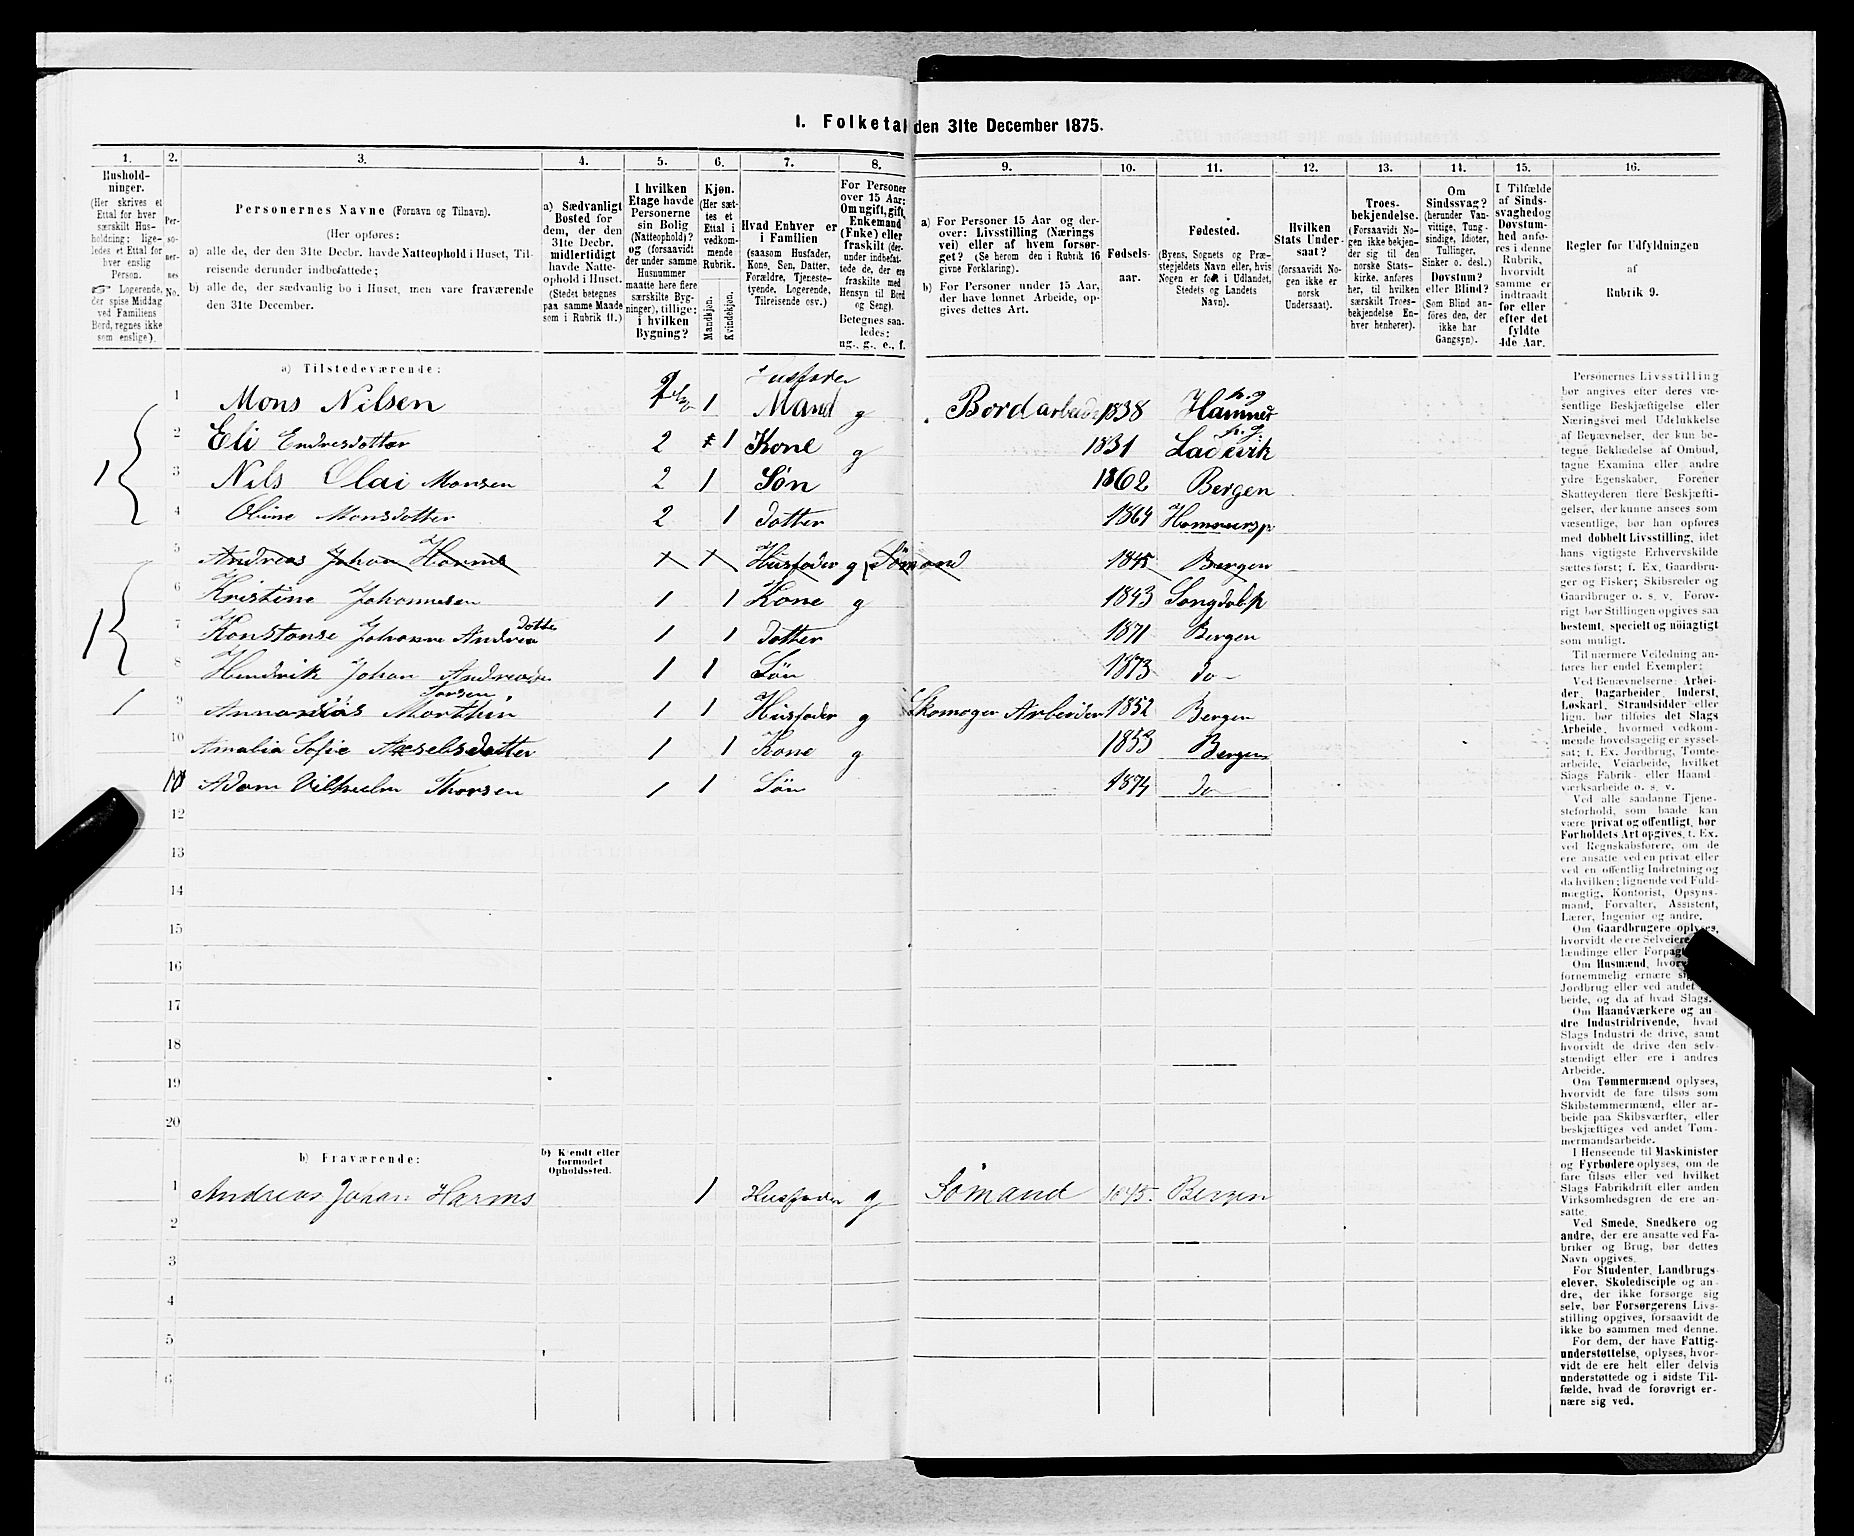 1. Folketal den 31te December 1875.
1. 2. 3. 4. 5. 6. 7. 8. 9. 10. 11. 12. 13. 14. 15. 16.
Husholdninger.
(Her skrives et Ettal for hver særskilt Husholdning; ligeledes et Ettal for hver enslig Person.
☞ Logerende, der spise Middag ved Familiens Bord, regnes ikke som enslige).
Personernes No.
Personernes Navne (Fornavn og Tilnavn).
(Her opføres:
a) alle de, der den 31te Decbr. havde Natteophold i Huset, Tilreisende derunder indbefattede;
b) alle de, der sædvanlig bo i Huset, men vare fraværende den 31te December.
a) Sædvanligt Bosted for dem, der den 31te Decbr. midlertidigt havde Natteophold i Huset. (Stedet betegnes paa samme Maade som i Rubrik 11.)
I hvilken Etage havde Personerne sin Bolig (Natteophold)? og (forsaavidt der under samme Husnummer maatte høre flere særskilte Bygninger), tillige: i hvilken Bygning?
Kjøn. (Her sættes et Ettal i vedkommende Rubrik.
Mandkjøn. Kvindekjøn.
Hvad Enhver er i Familien
(saasom Husfader, Kone, Søn, Datter, Forældre, Tjenestetyende, Logerende, Tilreisende osv.)
For Personer over 15 Aar: Om ugift, gift, Enkemand (Enke) eller fraskilt (derunder indbefattede de, der ere fraskilte med Hensyn til Bord og Seng).
Betegnes saaledes: ug., g., e., f.
a) For Personer 15 Aar og derover: Livsstilling (Næringsvei) eller af hvem forsørget? (Se herom den i Rubrik 16 givne Forklaring).
b) For Personer under 15 Aar, der have lønnet Arbeide, opgives dettes Art.
Fødselsaar.
Fødested.
(Byens, Sognets og Præstegjeldets Navn eller, hvis Nogen er født i Udlandet, Stedets og Landets Navn).
Hvilken Stats Undersaat?
(forsaavidt Nogen ikke er norsk Undersaat).
Troesbekjendelse.
(Forsaavidt Nogen ikke bekjender sig til den norske Statskirke, anføres her, til hvilken særskilt Troesbekjendelse Enhver henhører).
Om Sindssvag? (herunder Vanvittige, Tungsindige, Idioter, Tullinger, Sinker o. desl.) Døvstum? eller Blind?
(Som Blind anføres den, der ikke har Gangsyn).
I Tilfælde af Sindssvaghed og Døvstumhed anføres i denne Rubrik, hvorvidt samme er indtraadt før eller efter det fyldte 4de Aar.
Regler for Udfyldningen
af
Rubrik 9.
a) Tilstedeværende:
Husfader
1 Mons Nilsen 1 Mand g Bordarbeider 1838 Hammer p.g.
2 Eli Endresdotter 2 1 Kone g 1831 Ladevik p.g.
1 3 Nils Olai Monsen 2 1 Søn 1862 Bergen
4 Oline Monsdotter 2 1 dotter 1864 Hammersp.
5 Andreas Johan Harms Husfader g Sømand 1845 Bergen
6 Kristine Johannesen 1 1 Kone g 1843 Songdal p
dotter
1 7 Konstanse Johanne Andrea 1 1 dotter 1871 Bergen
8 Hendrik Johan 1 1 Søn 1873 do
1 9 Annanias Morthin 1 1 Husfader g Skomager Arbeider 1852 Bergen
10 Amalia Sofie Axelsdatter 1 1 Kone g 1853 Bergen
11 Adam Vilhelm Thorsen 1 1 Søn 1874 do
12
13
14
15
16
17
18
19
20
b) Fraværende:
b) Kjendt eller formodet Opholdssted.
1 Andreas Johan Harms 1 Husfader g Sømand 1845. Bergen
2
3
4
5
6
Personernes Livsstilling
bør angives efter deres væ-
sentlige Beskjæftigelse eller
Næringsvei med Udelukkelse
af Benævnelser, der kun be-
tegne Beklædelse af Ombud,
tagne Examina eller andre
ydre Egenskaber. Forener
Skatteyderen flere Beskjæfti-
gelser, der kunne ansees som
væsentlige, bør han opføres
med dobbelt Livsstilling, idet
hans vigtigste Erhvervskilde
sættes først; f. Ex. Gaardbru-
ger og Fisker; Skibsreder og
Gaardbruger o. s. v. Forøv-
rigt bør Stillingen opgives saa
bestemt, specielt og nöiagtigt
som muligt.
Til nærmere Veiledning an-
føres her endel Exempler:
Ved Benævnelserne: Arbei-
der, Dagarbeider, Inderst,
Løskarl, Strandsidder eller
lign. bør tilføies det Slags
Arbeide, hvormed vedkom-
mende hovedsagelig er syssel-
sat; f. Ex. Jordbrug, Tomte-
arbeide, Veiarbeide, hvilket
Slags Fabrik- eller Haand-
værksarbeide o. s. v.
Ved alle saadanne Tjene-
steforhold, som baade kan
være privat og offentligt, bør
Forholdets Art opgives, t. Ex.
ved Regnskabsførere, om de
ere ansatte ved en privat eller
ved en offentlig Indretning og
da hvilken; lignende ved Fuld-
mægtig, Kontorist, Opsyns-
mand, Forvalter, Assistent,
Lærer, Ingeniør og andre.
Om Gaardbrugere oplyses,
hvorvidt de ere Selveiere
lændinge eller
Om Husmænd,
fornemmelig ernære
Jordbrug eller ved andet
beide, og da af hvad Slags.
Om Haandværkere og an-
dre Industridrivende, hvad
Slags Industri de drive, samt
hvorvidt de drive den selv-
stændigt eller ere i andres
Arbeide.
Om Tømmermænd oplyses,
hvorvidt de fare tilsøs som
Skibstømmermænd, eller ar-
beide paa Skibsværfter, eller
beskjæftiges ved andet Tøm-
mermandsarbeide.
I Henseende til Maskinister
og Fyrbødere oplyses, om de
fare tilsøs eller ved hvilket
Slags Fabrikdrift eller anden
Virksomhedsgren de ere an-
satte.
Ved Smede, Snedkere og
andre, der ere ansatte ved Fa-
briker og Brug, bør dettes
Navn opgives.
For Studenter, Landbrugs-
elever, Skoledisciple og an-
dre, der ikke forsørge sig
selv, bør Forsørgerens Livs-
stilling opgives, forsaavidt de
ikke bo sammen med denne.
For dem, der have Fattig-
understøttelse, oplyses, hvor-
vidt de ere helt eller delvis
understøttede og i sidste Til-
fælde, hvad de forøvrigt er-
nære sig ved.